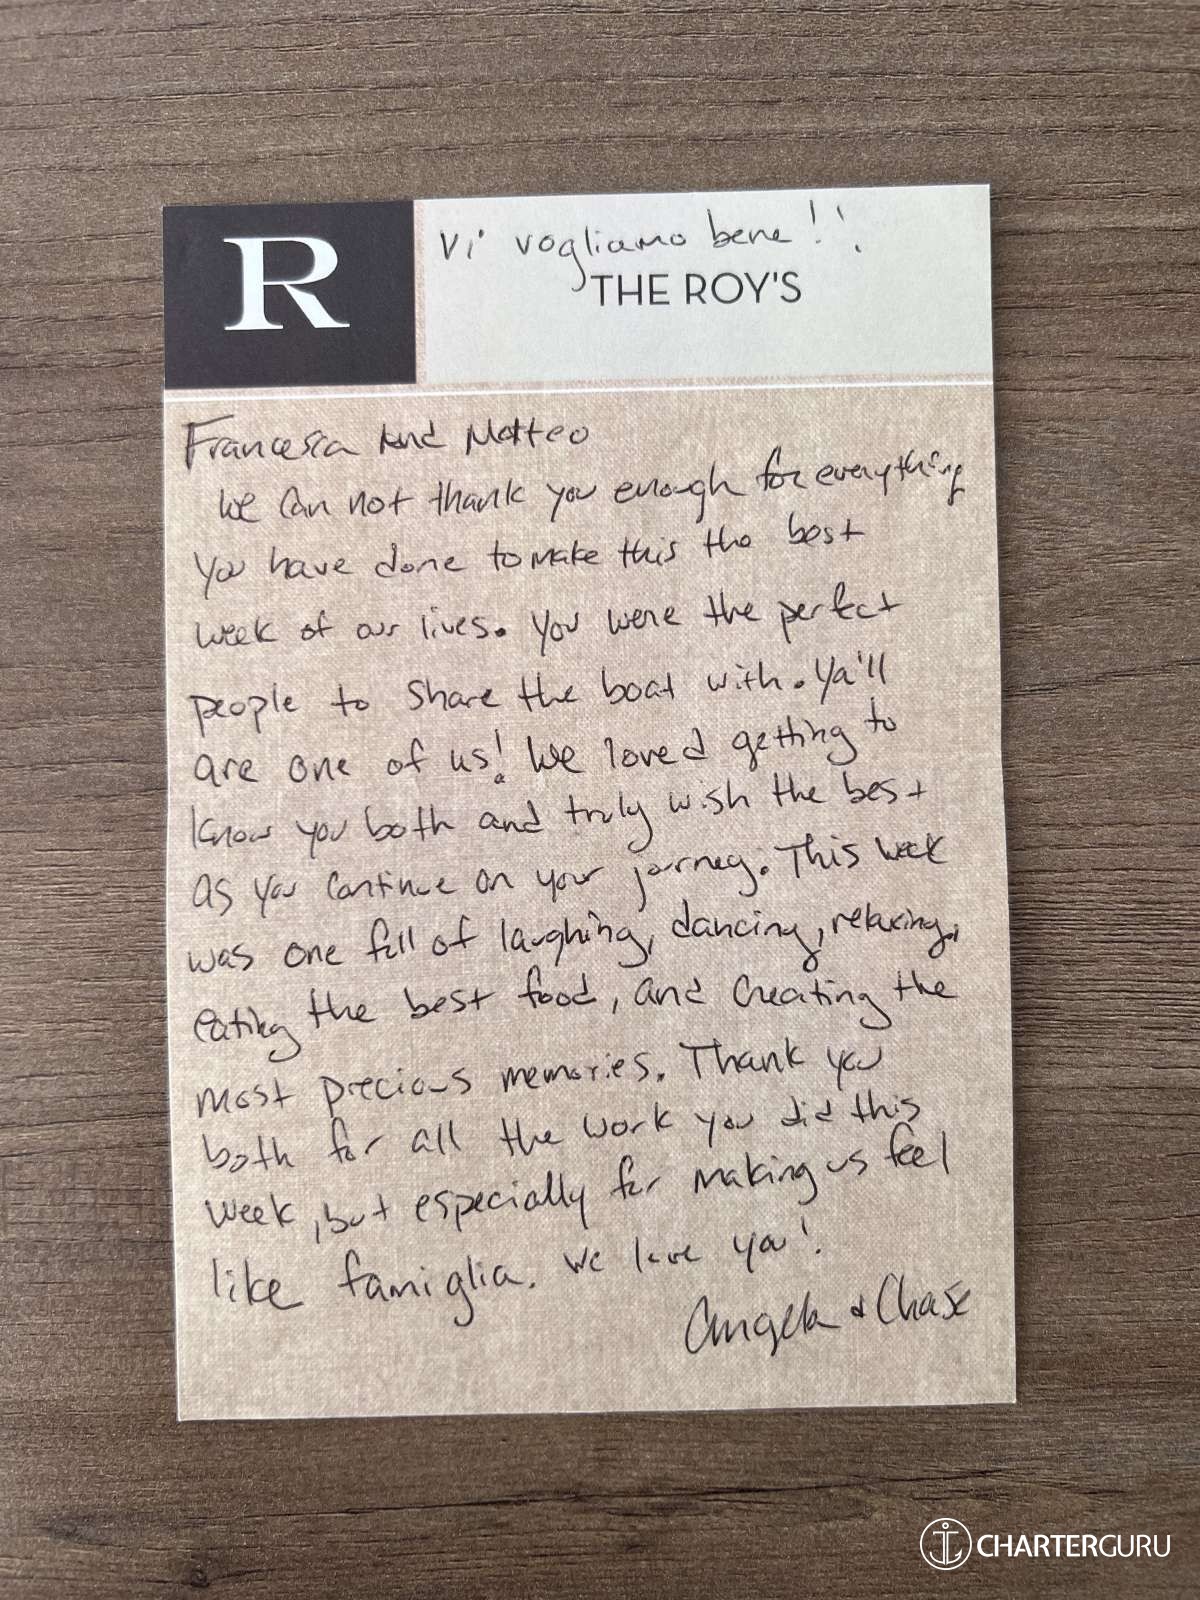 R
Vi vogliamo bene!!
THE ROY'S
Francesca And Matteo
We Can not thank you enough for everything
You have done to make this the best
week of our lives. You were the perfect
people to Share the boat with. Ya'll
are one of us! We loved getting to
know you both and truly wish the best
as you continue on your journey. This week
was one full of laughing, dancing, relaxing,
eating the best food, and creating the
most precious memories. Thank you
both for all the work you did this
week, but especially for making us feel
like famiglia. We love you!
Angela & Chase
CHARTERGURU